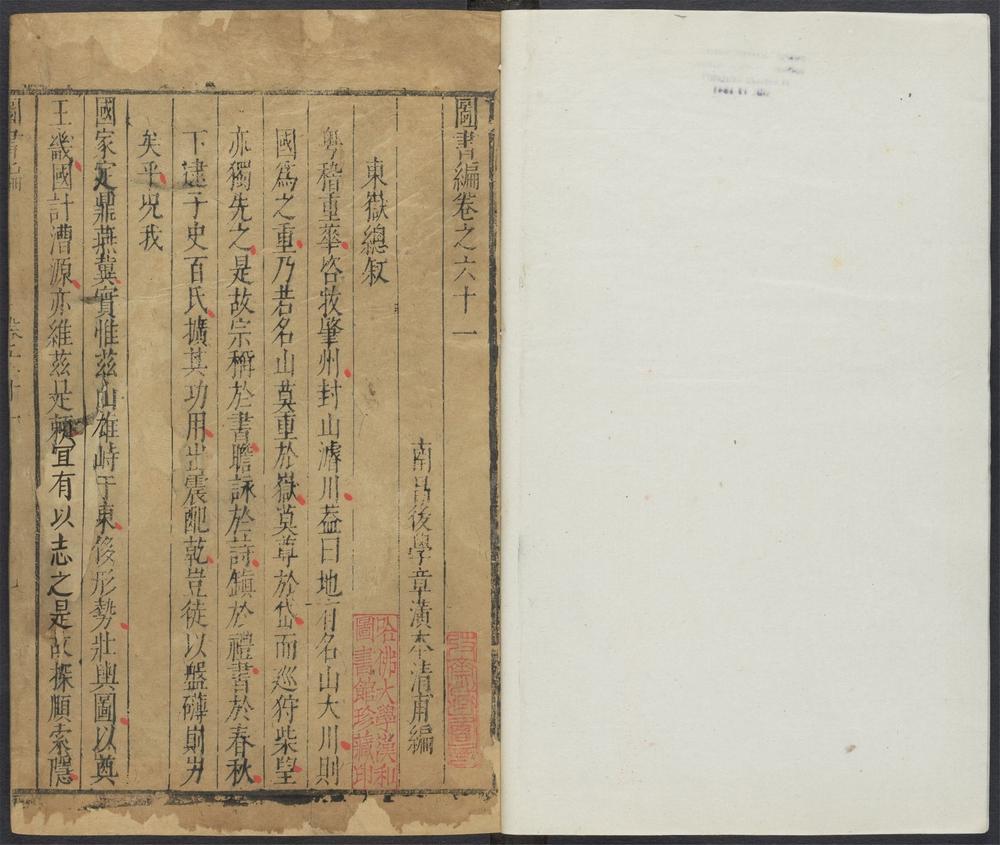 圖書編卷之六十一
南昌後學章潢本清甫編
東嶽總敘
粤稽重華咨牧肇州封山濬川葢曰地有名山大川則
國爲之重乃若名山莫重於嶽莫尊於岱而巡狩柴望
亦獨先之是故宗稱於書瞻詠於詩鎮於禮書於春秋
下逮子史百氏擴其功用出震配乾豈徒以盤礴崱屴
矣乎况我
國家定鼎燕冀實惟茲山雄峙于東後形勢壯輿圖以奠
王畿國計漕源亦維茲是賴宜有以志之是故探賾索隱
圖書編
哈佛大學漢和
圖書館珍藏印